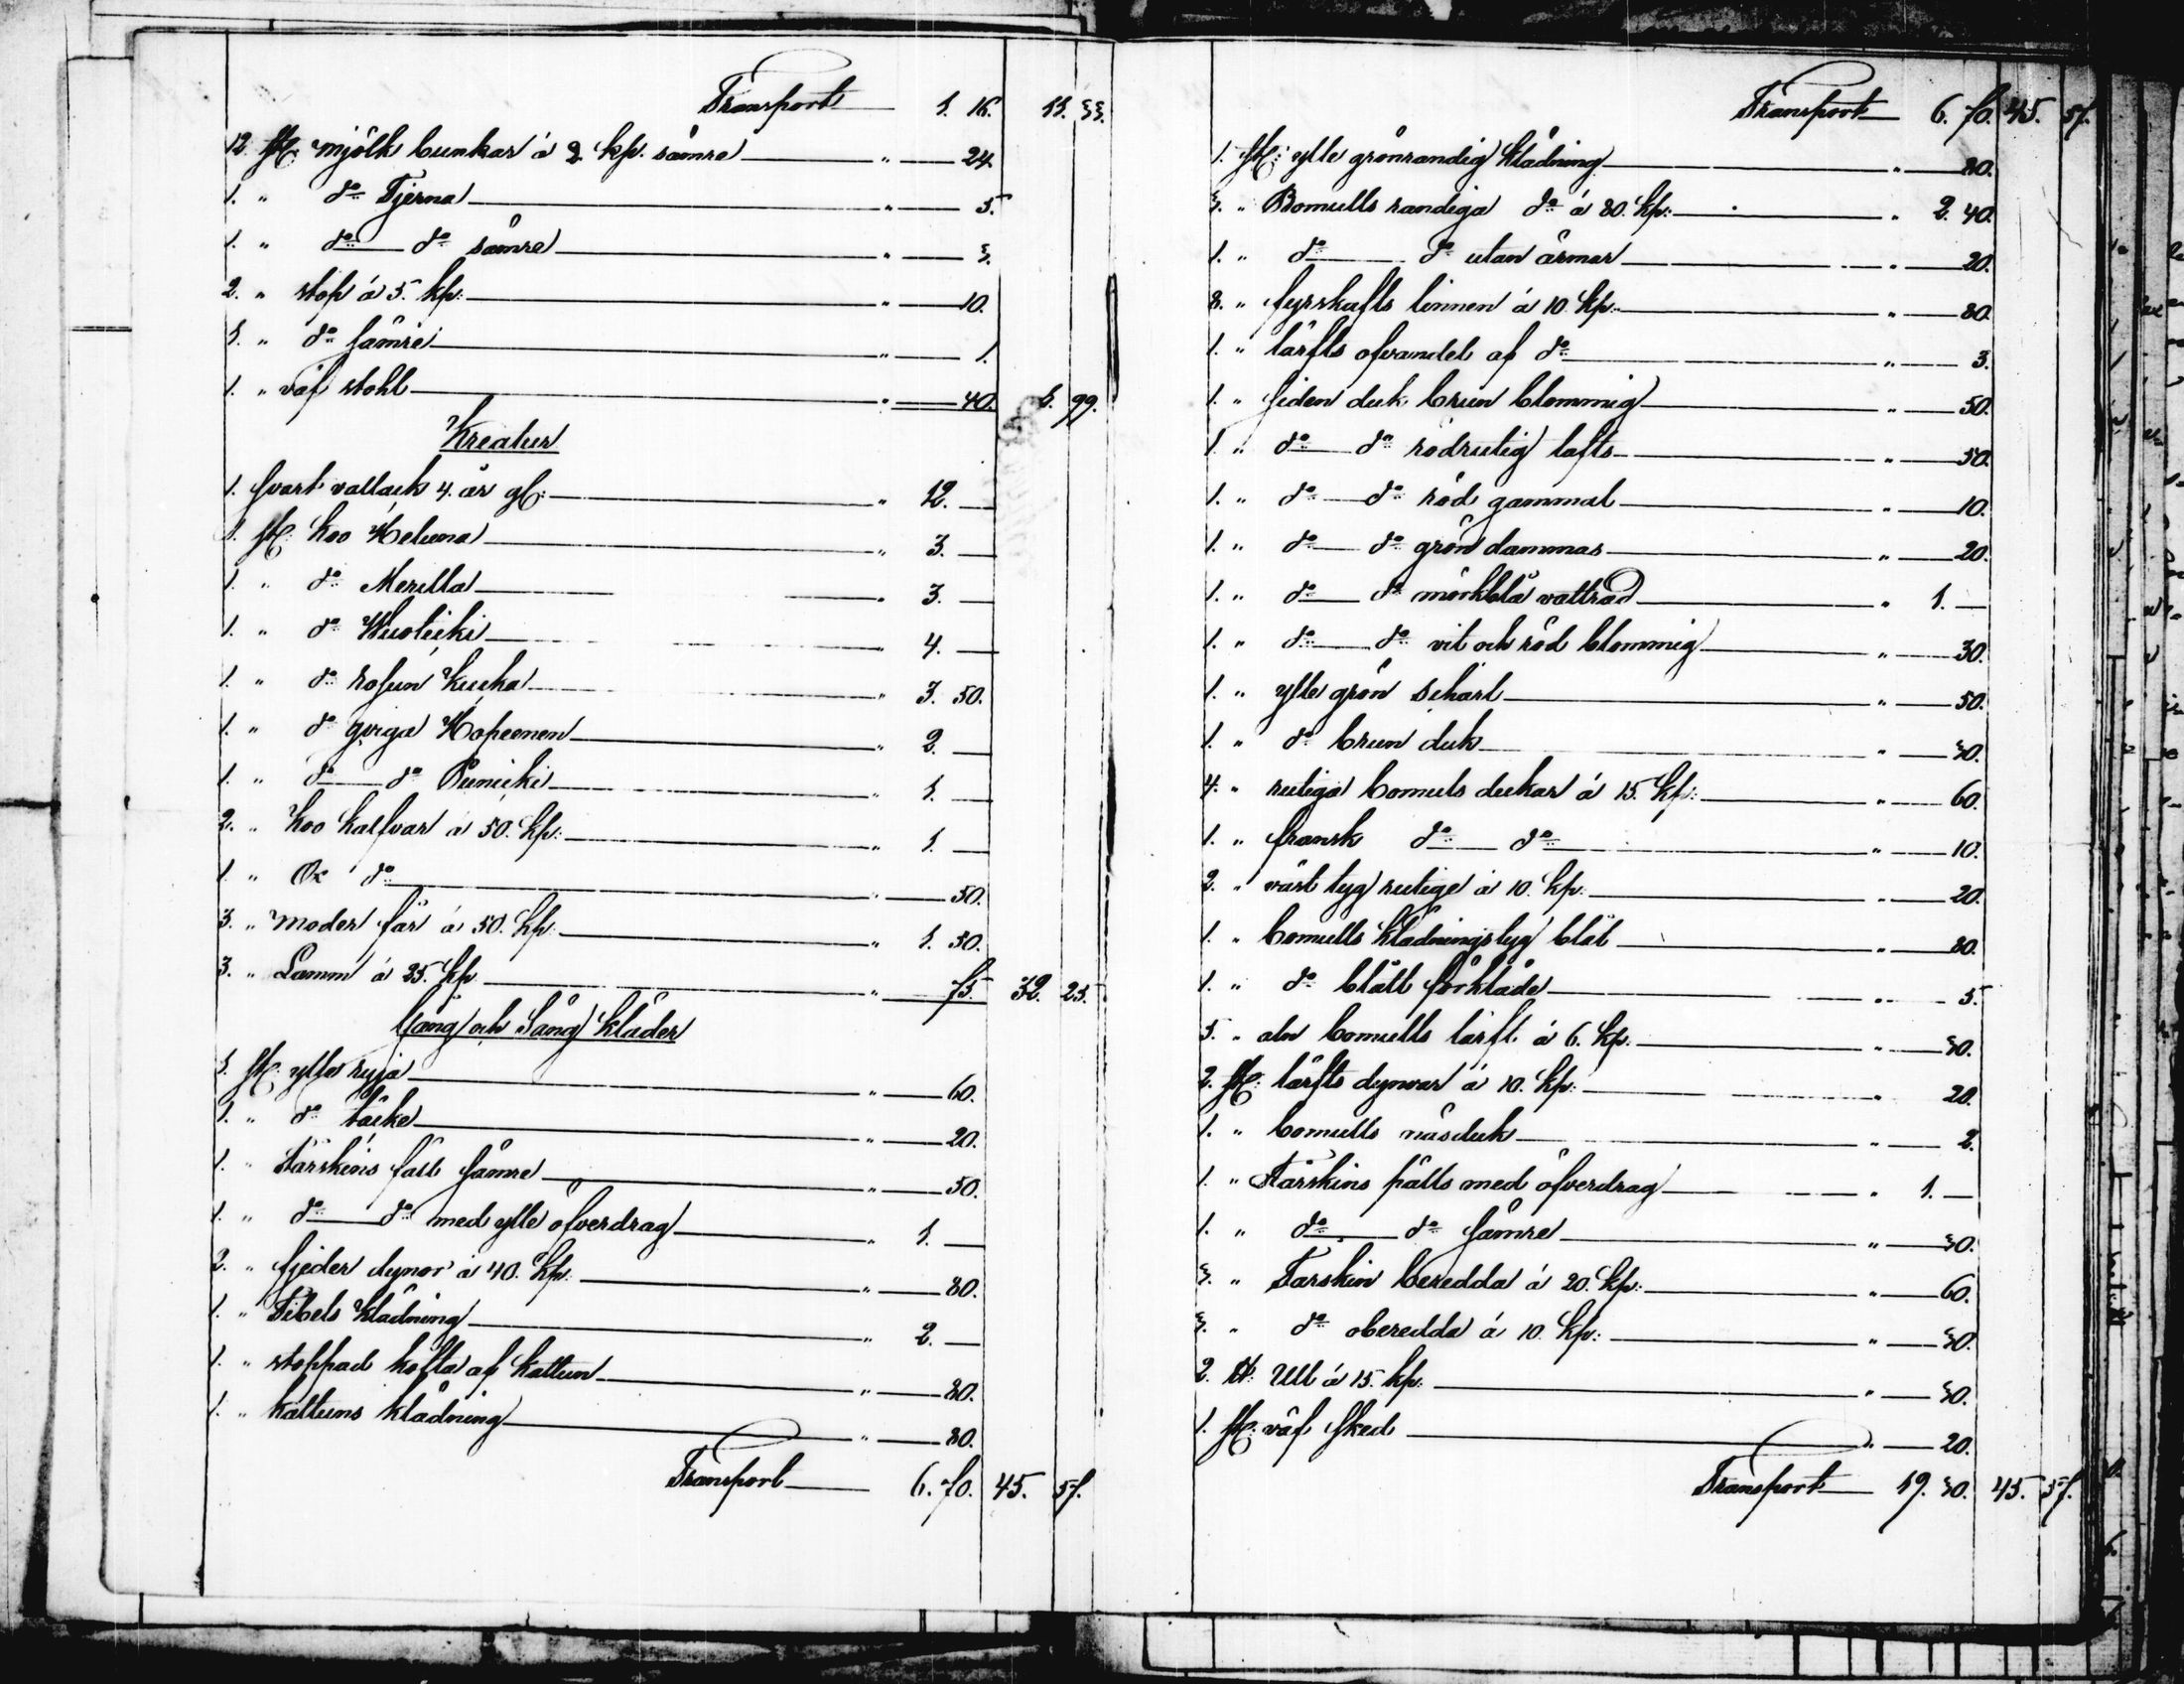 Transport 1. 16. 11. 33.
12. st: mjölk bunkar á 2 kp. sämre " 24.
1. " do Tjerna " 5.
1. " do do sämre " 3.
2. " stop á 5. kp: " 10.
1. " do sämre " 1.
1. " väf stohl " 40. 1. 99.
Kreatur
1. svart vallack 4. år gl: " 12. —
1. st: koo Heluna " 3. —
1. " do Merilla " 3. —
1. " do Wuoticki " 4. —
1. " do rosun kucka " 3. 50.
1. " do qviga Hopeenen " 2. —
1. " do do Punicki " 1. —
2. " koo kalfvar á 50. kp: " 1. —
1. " Ox do " 50.
3. " moder får á 50. kp: " 1. 50.
3. " Lamm á 25. kp " 75. 32. 25.
Gång och Säng kläder
1. st: ylle ryja " 60.
1. " do täcke " 20.
1. " Fårskins fäll sämre " 50.
1. " do do med ylle öfverdrag " 1. —
2. " fjeder dynor á 40. kp: " 80.
1. " Tibets klädning " 2. —
1. " stoppad kofta af kattun " 80.
1. " kattuns klädning " 80.
Transport 6. 70. 45. 57.
Transport 6. 70. 45. 57.
1. st: ylle grönrandig klädning " 80.
3. " Bomulls randiga do á 80. kp: " 2. 40.
1. " do do utan ärmar " 20.
8. " fyrskafts linnen á 10. kp: " 80.
1. " lärfts ofvandel af do " 3.
1. " siden duk brun blommig " 50.
1. " do do rödrutig tafts " 50.
1. " do do röd gammal " 10.
1. " do do grön dammas " 20.
1. " do do mörkblå vattrad " 1. —
1. " do do vit och röd blommig " 30.
1. " ylle grön scharl " 50.
1. " do brun duk " 30.
4. " rutiga bomuls dukar á 15. kp: " 60.
1. " fransk do do " 10.
2. " väst tyg rutige á 10. kp: " 20.
1. " bomulls klädningstyg blåt " 80.
1. " do blått förkläde " 5.
5. " aln bomulls lärft á 6. kp. " 30.
2. st: lärfts dynvar á 10. kp: " 20.
1. " bomulls näsduk " 2.
1. " Fårskins pälts med öfverdrag " 1. —
1. " do do sämre " 30.
3. " Fårskin beredda á 20. kp: " 60.
3. " do oberedda á 10. kp: " 30.
2. ℔: Ull á 15. kp: " 30.
1. st: väf sked " 20.
Transport 19. 30. 45. 57.